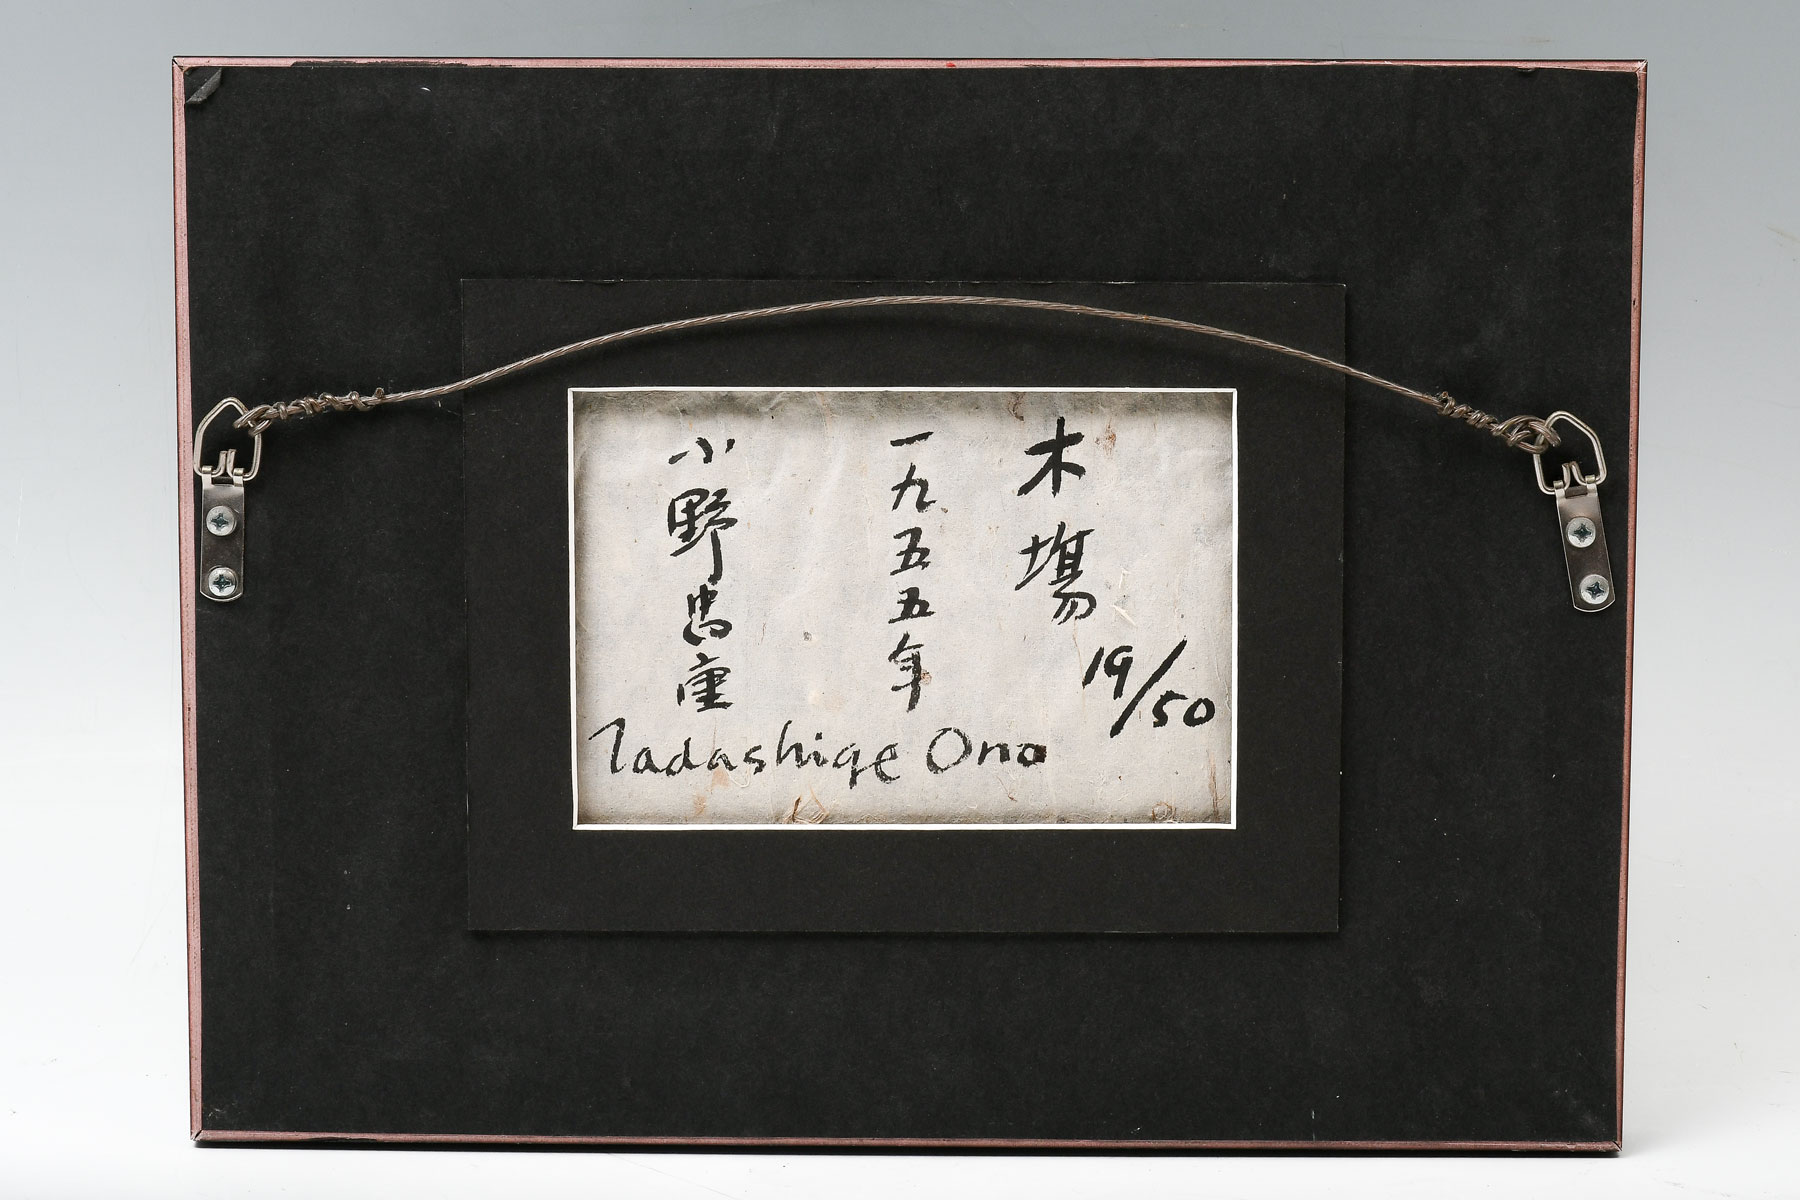 木場
19/50
一九五五年
小野忠重
Tadashige Ono